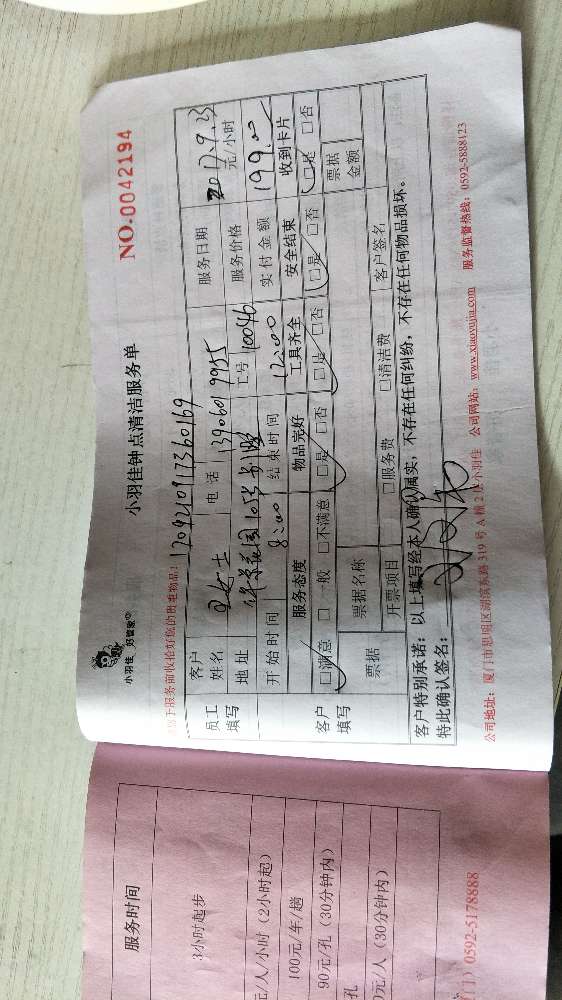 小羽佳 好管家
小羽佳钟点清洁服务单
NO.0042194
下服务前收拾好您的贵重物品!
1709210917360169
员工填写
客户姓名
女士
电话
1390601 9985
服务日期
2017.9.23
地址
花园
工号
10046
服务价格
元/小时
开始时间
8:00
结束时间
12:00
实付金额
199.00
客户填写
服务态度
物品完好
工具齐全
安全结束
收到卡片
□满意 □一般 □不满意
□是 □否
□是 □否
□是 □否
□是 □否
票据
票据名称
票据金额
开票项目
□服务费 □清洁费
客户签名
客户特别承诺:以上填写经本人确认属实,不存在任何纠纷,不存在任何物品损坏。
特此确认签名:
公司地址:厦门市思明区湖滨东路 319 号 A 幢 2 楼小羽佳 公司网站:www.xiaoyujia.com 服务监督热线:0592-5888123
服务时间
3小时起步
元/人/小时(2小时起)
100元/车/趟
90元/孔(30分钟内)
孔
0元/人(30分钟内)
门)0592-5178888